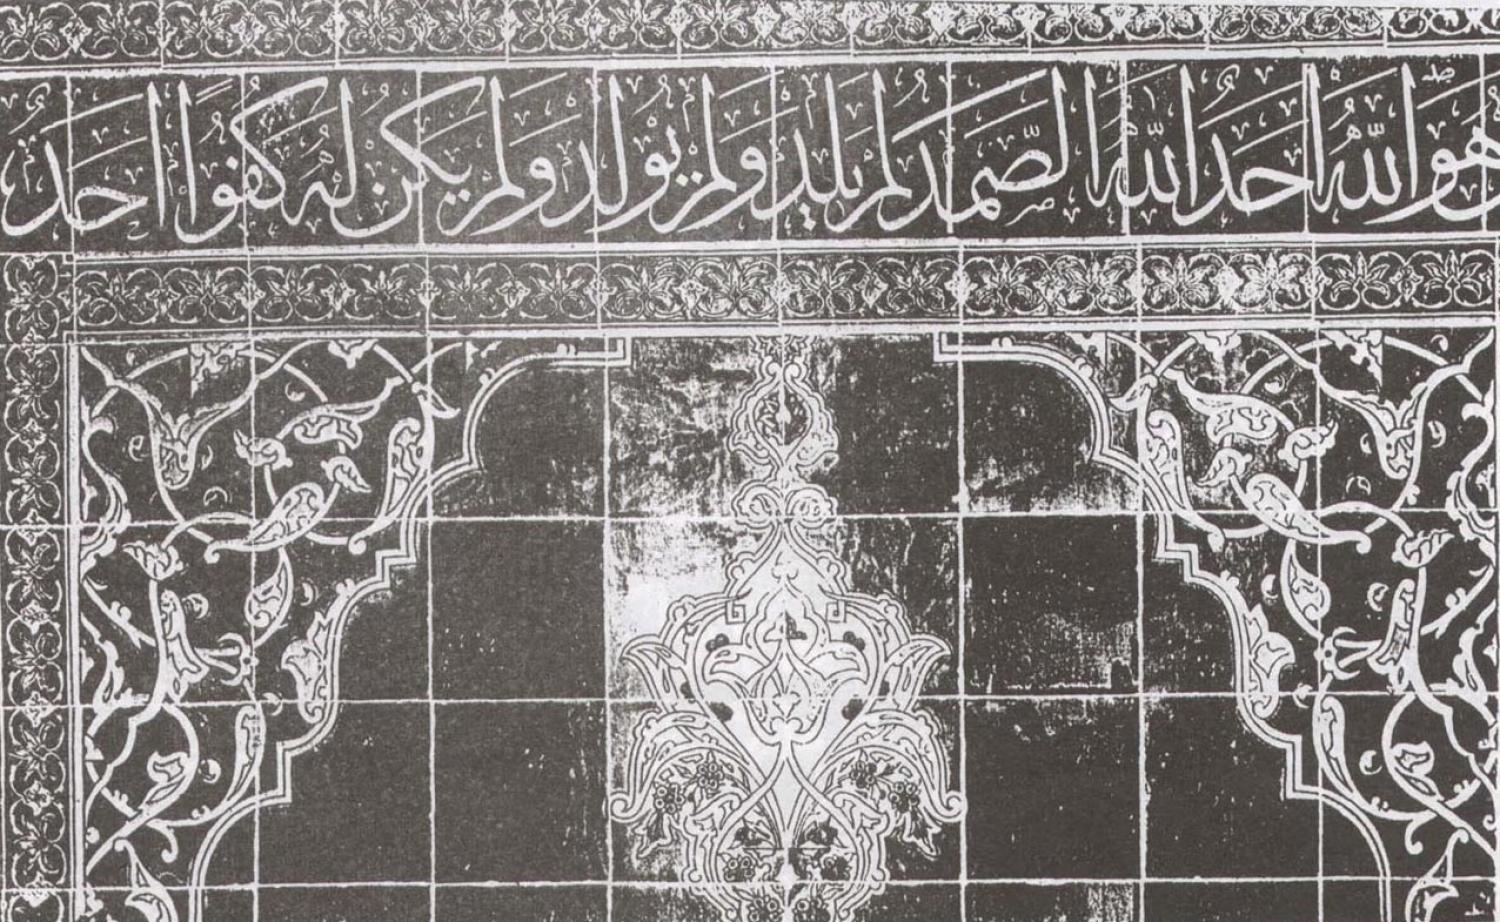 هُوَ اللّٰهُ اَحَدٌ اَللّٰهُ الصَّمَدُ لَمْ يَلِدْ وَلَمْ يُولَدْ وَلَمْ يَكُنْ لَهُ كُفُوًا اَحَدٌ